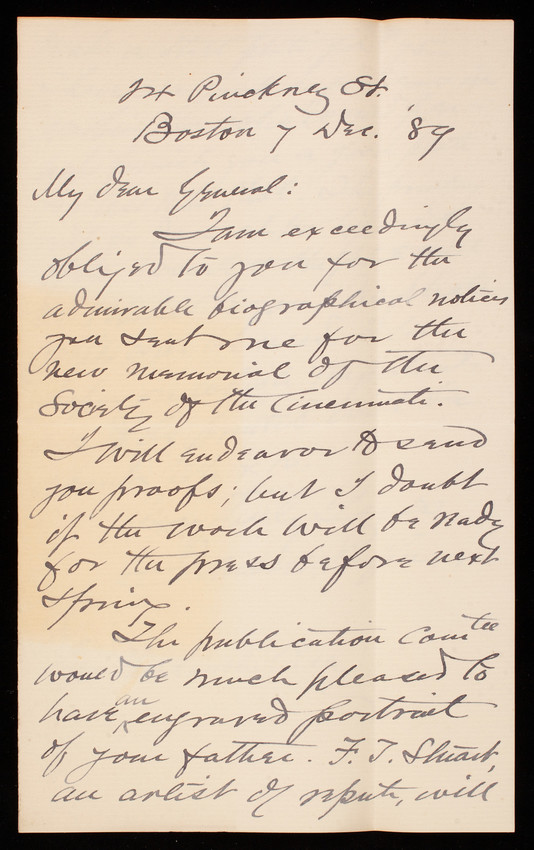 24 Pinckney St.
Boston 7 Dec. '89
My dear General:
I am exceedingly
obliged to you for the
admirable biographical notices
you sent me for the
new memorial of the
Society of the Cincinnati.
I will endeavor to send
you proofs; but I doubt
if the work will be ready
for the press before next
Spring.
The publication Comtee
would be much pleased to
have an engraved portrait
of your father. F. T. Stuart,
an artist of repute, will